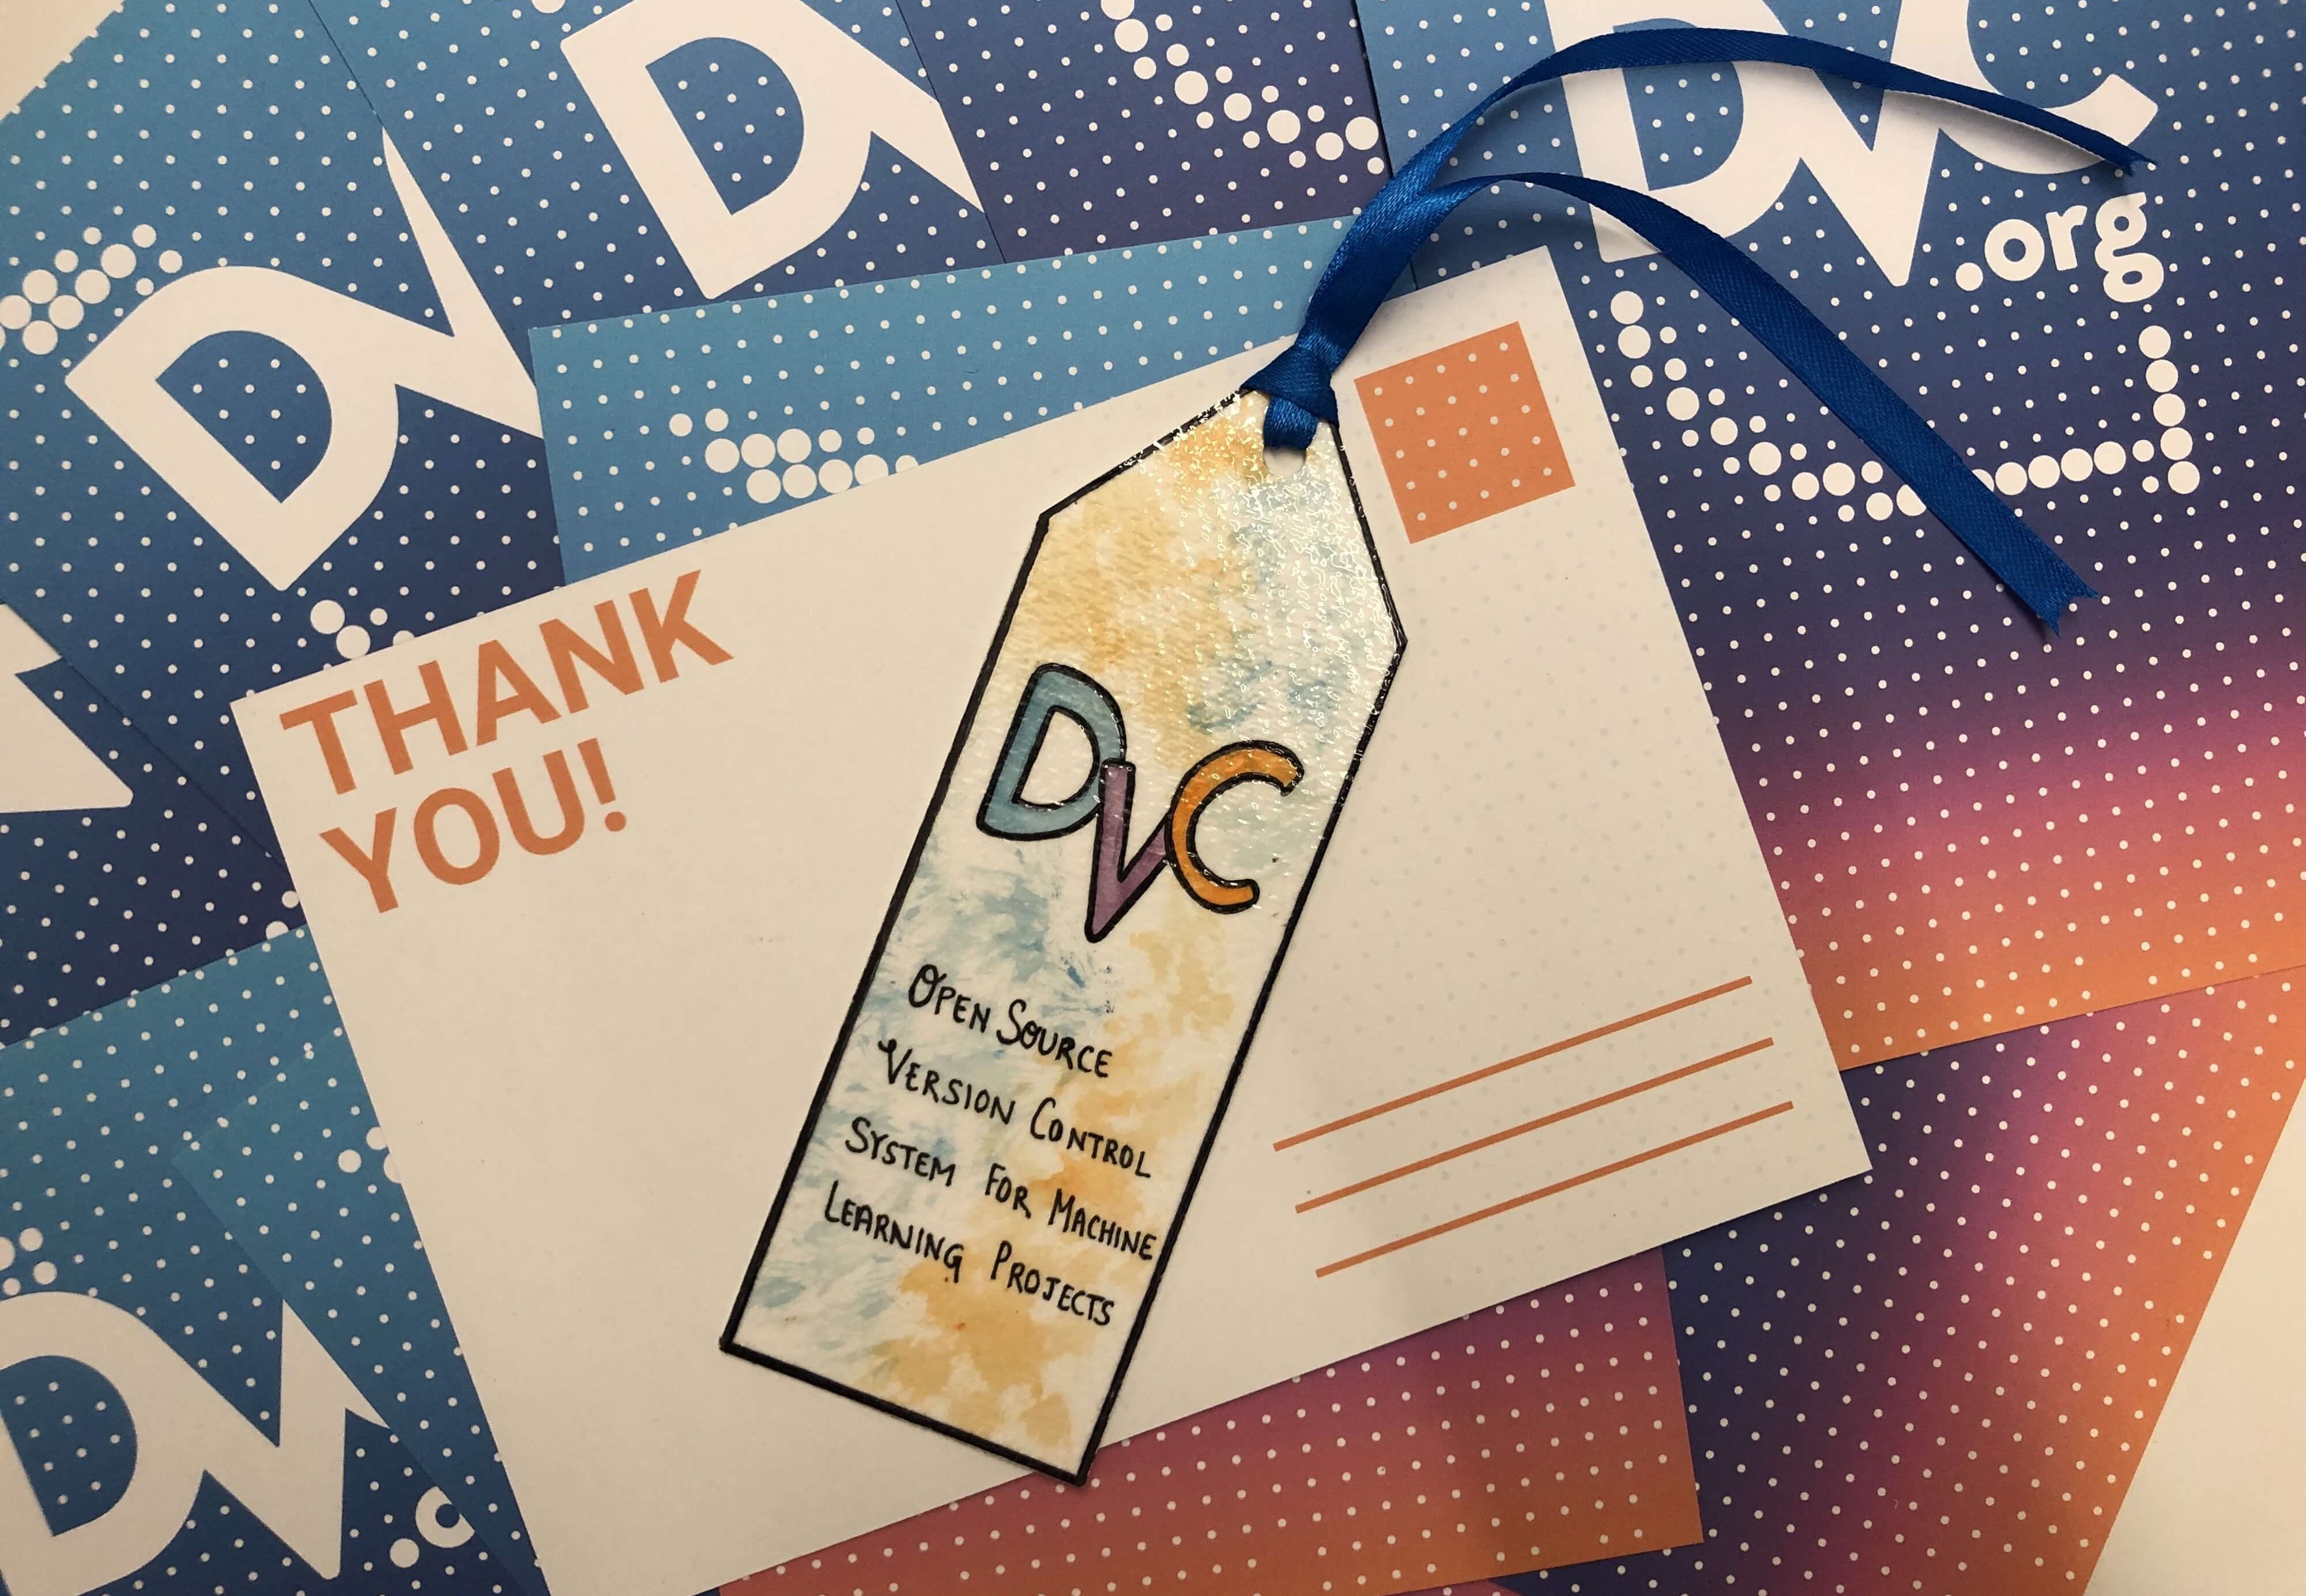 DV
D
DVC
.org
THANK
YOU!
DVC
OPEN SOURCE
VERSION CONTROL
SYSTEM FOR MACHINE
LEARNING PROJECTS
DV